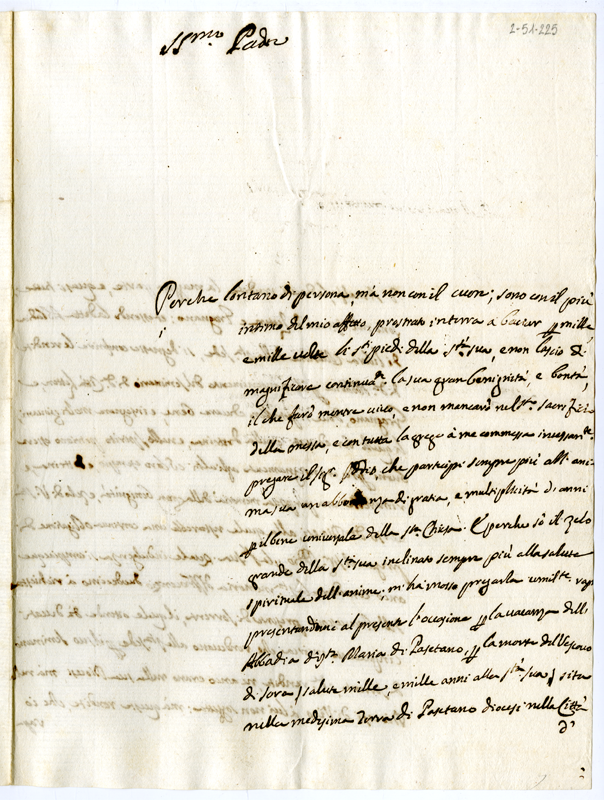 2-51-225
SS.mo Padre
Perche lontano di persona, mà non con il cuore; sono con il più
intimo del mio affetto, prostrato in terra à baciar p mille
e mille volte li s.ti piedi della S.tà sua, e non lascio di
magnificare continuam.te la sua gran benignità, e bontà,
il che farò mentre vivo, e non mancarò nel s.to sacrificio
della messa, e con tutta la grege à me commessa incessant.te
pregare il sig. Iddio che partecipi sempre più all'ani-
ma sua un abbondanza di gratia, e multiplicità di anni
p il bene universale della s.ta Chiesa. E perche sò il zelo
grande della S.tà sua inclinato sempre più alla salute
spirituale dell'anime, mi hà mosso pregarla umilm.te rap
presentandomi al presente l'occasione p la vacanza dell'
Abbadia di S.ta Maria di Pasetano, p la morte del Vescovo
di Sora, salute mille, e mille anni alla S.tà sua, sita
nella medesima Terra di Pasetano diocesi nella Città
d'